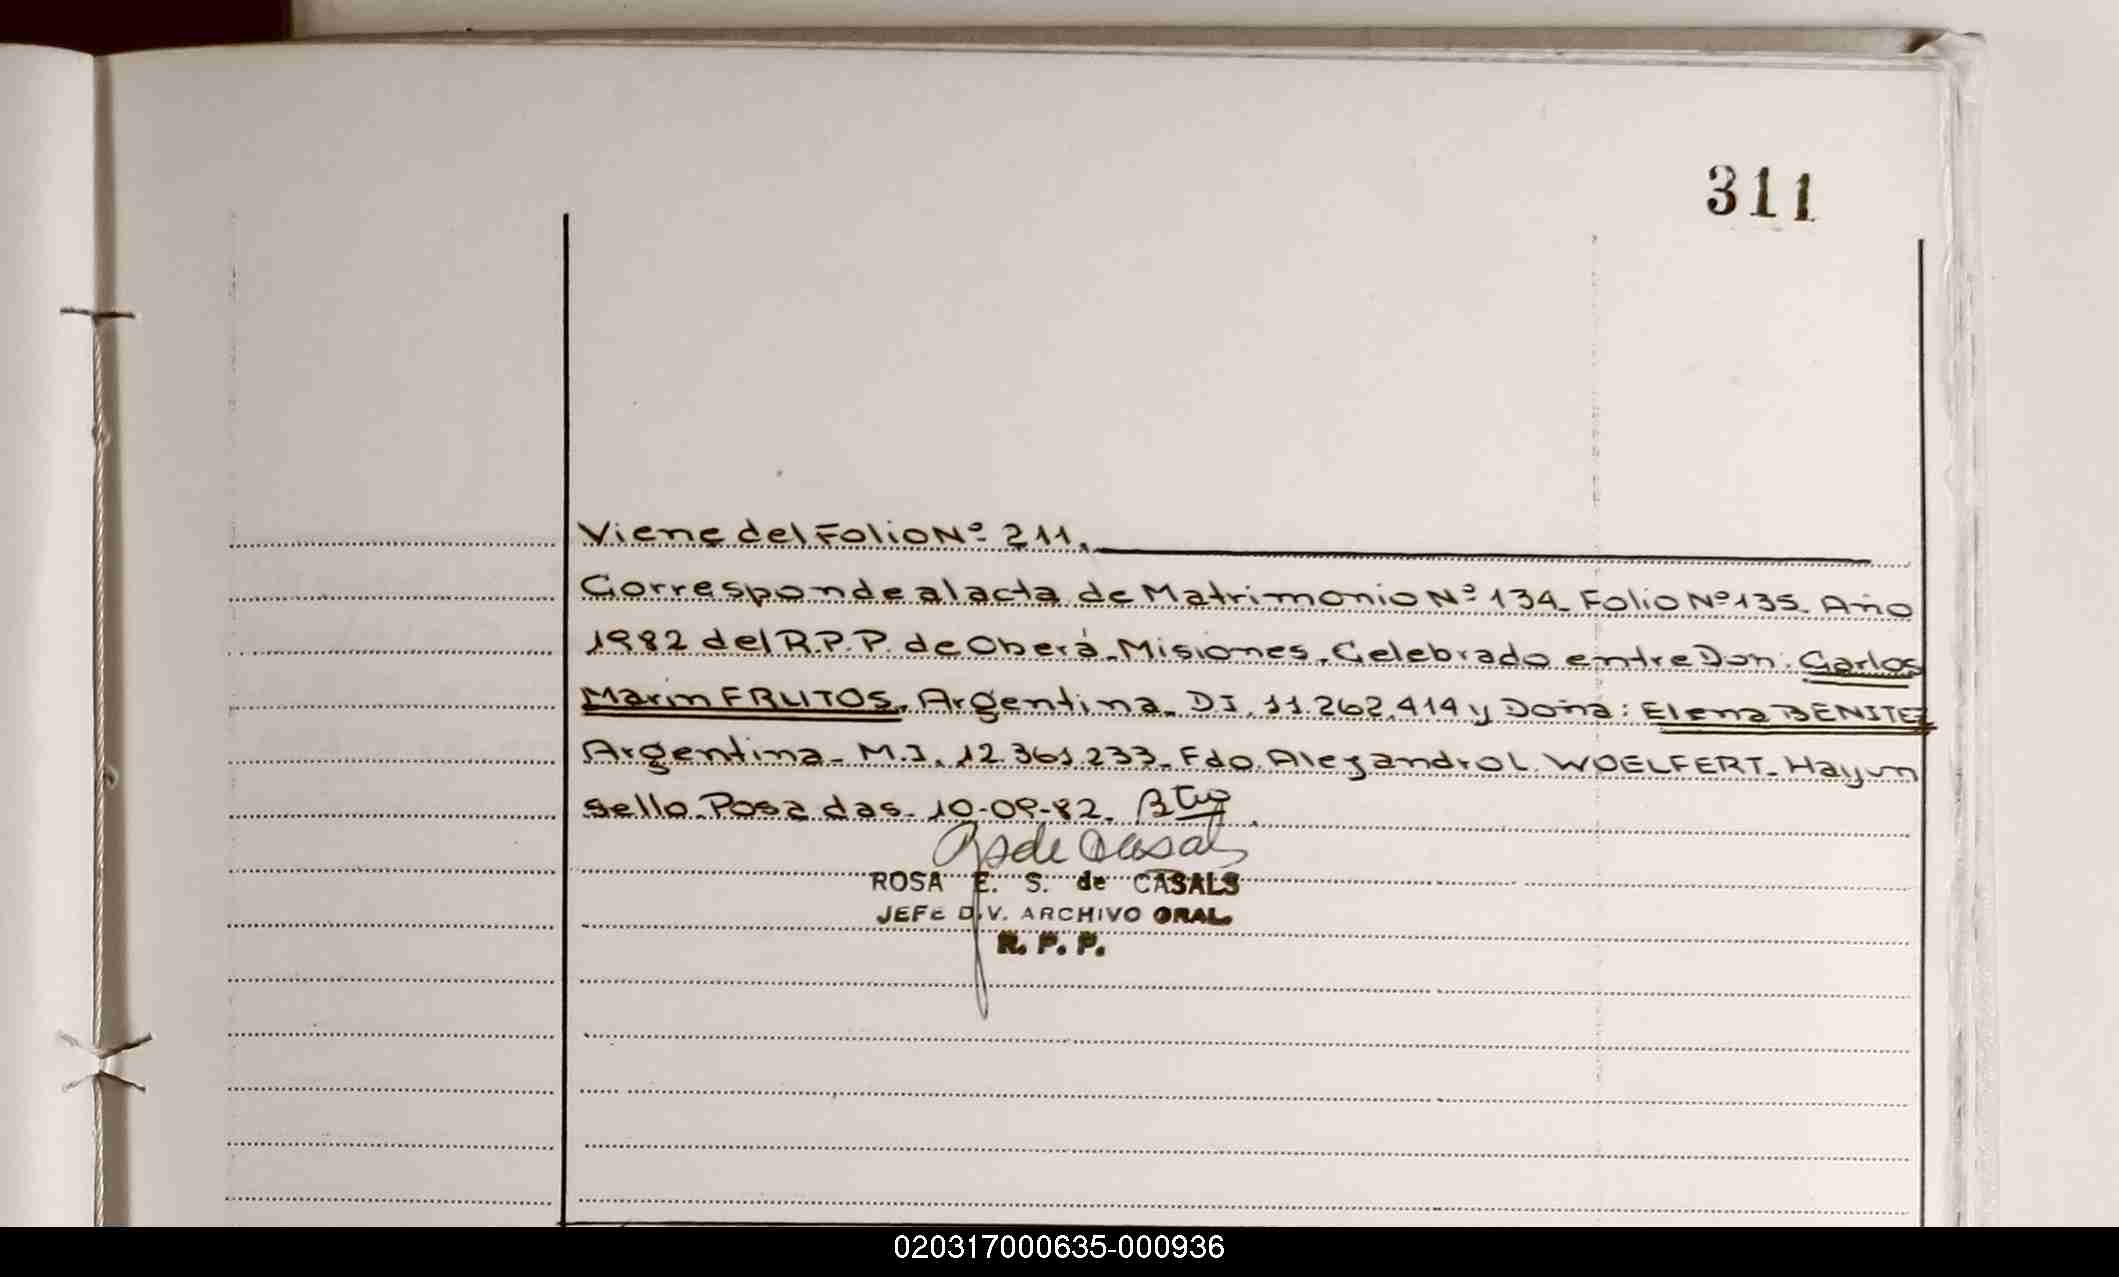 311
Viene del Folio Nº 211.
Corresponde al acta de Matrimonio Nº 134. Folio Nº 135. Año
1982 del R.P.P. de Oberá. Misiones. Celebrado entre Don: Carlos
Marin FRUTOS. Argentina. DI. 11.262.414 y Doña: Elena BENITEZ
Argentina. M.I. 12.361.233. Fdo. Alejandro L. WOELFERT. Hay un
sello. Posadas. 10-09-82.
R S de Casals
ROSA E. S. de CASALS
JEFE DIV. ARCHIVO GRAL.
R. P. P.
020317000635-000936